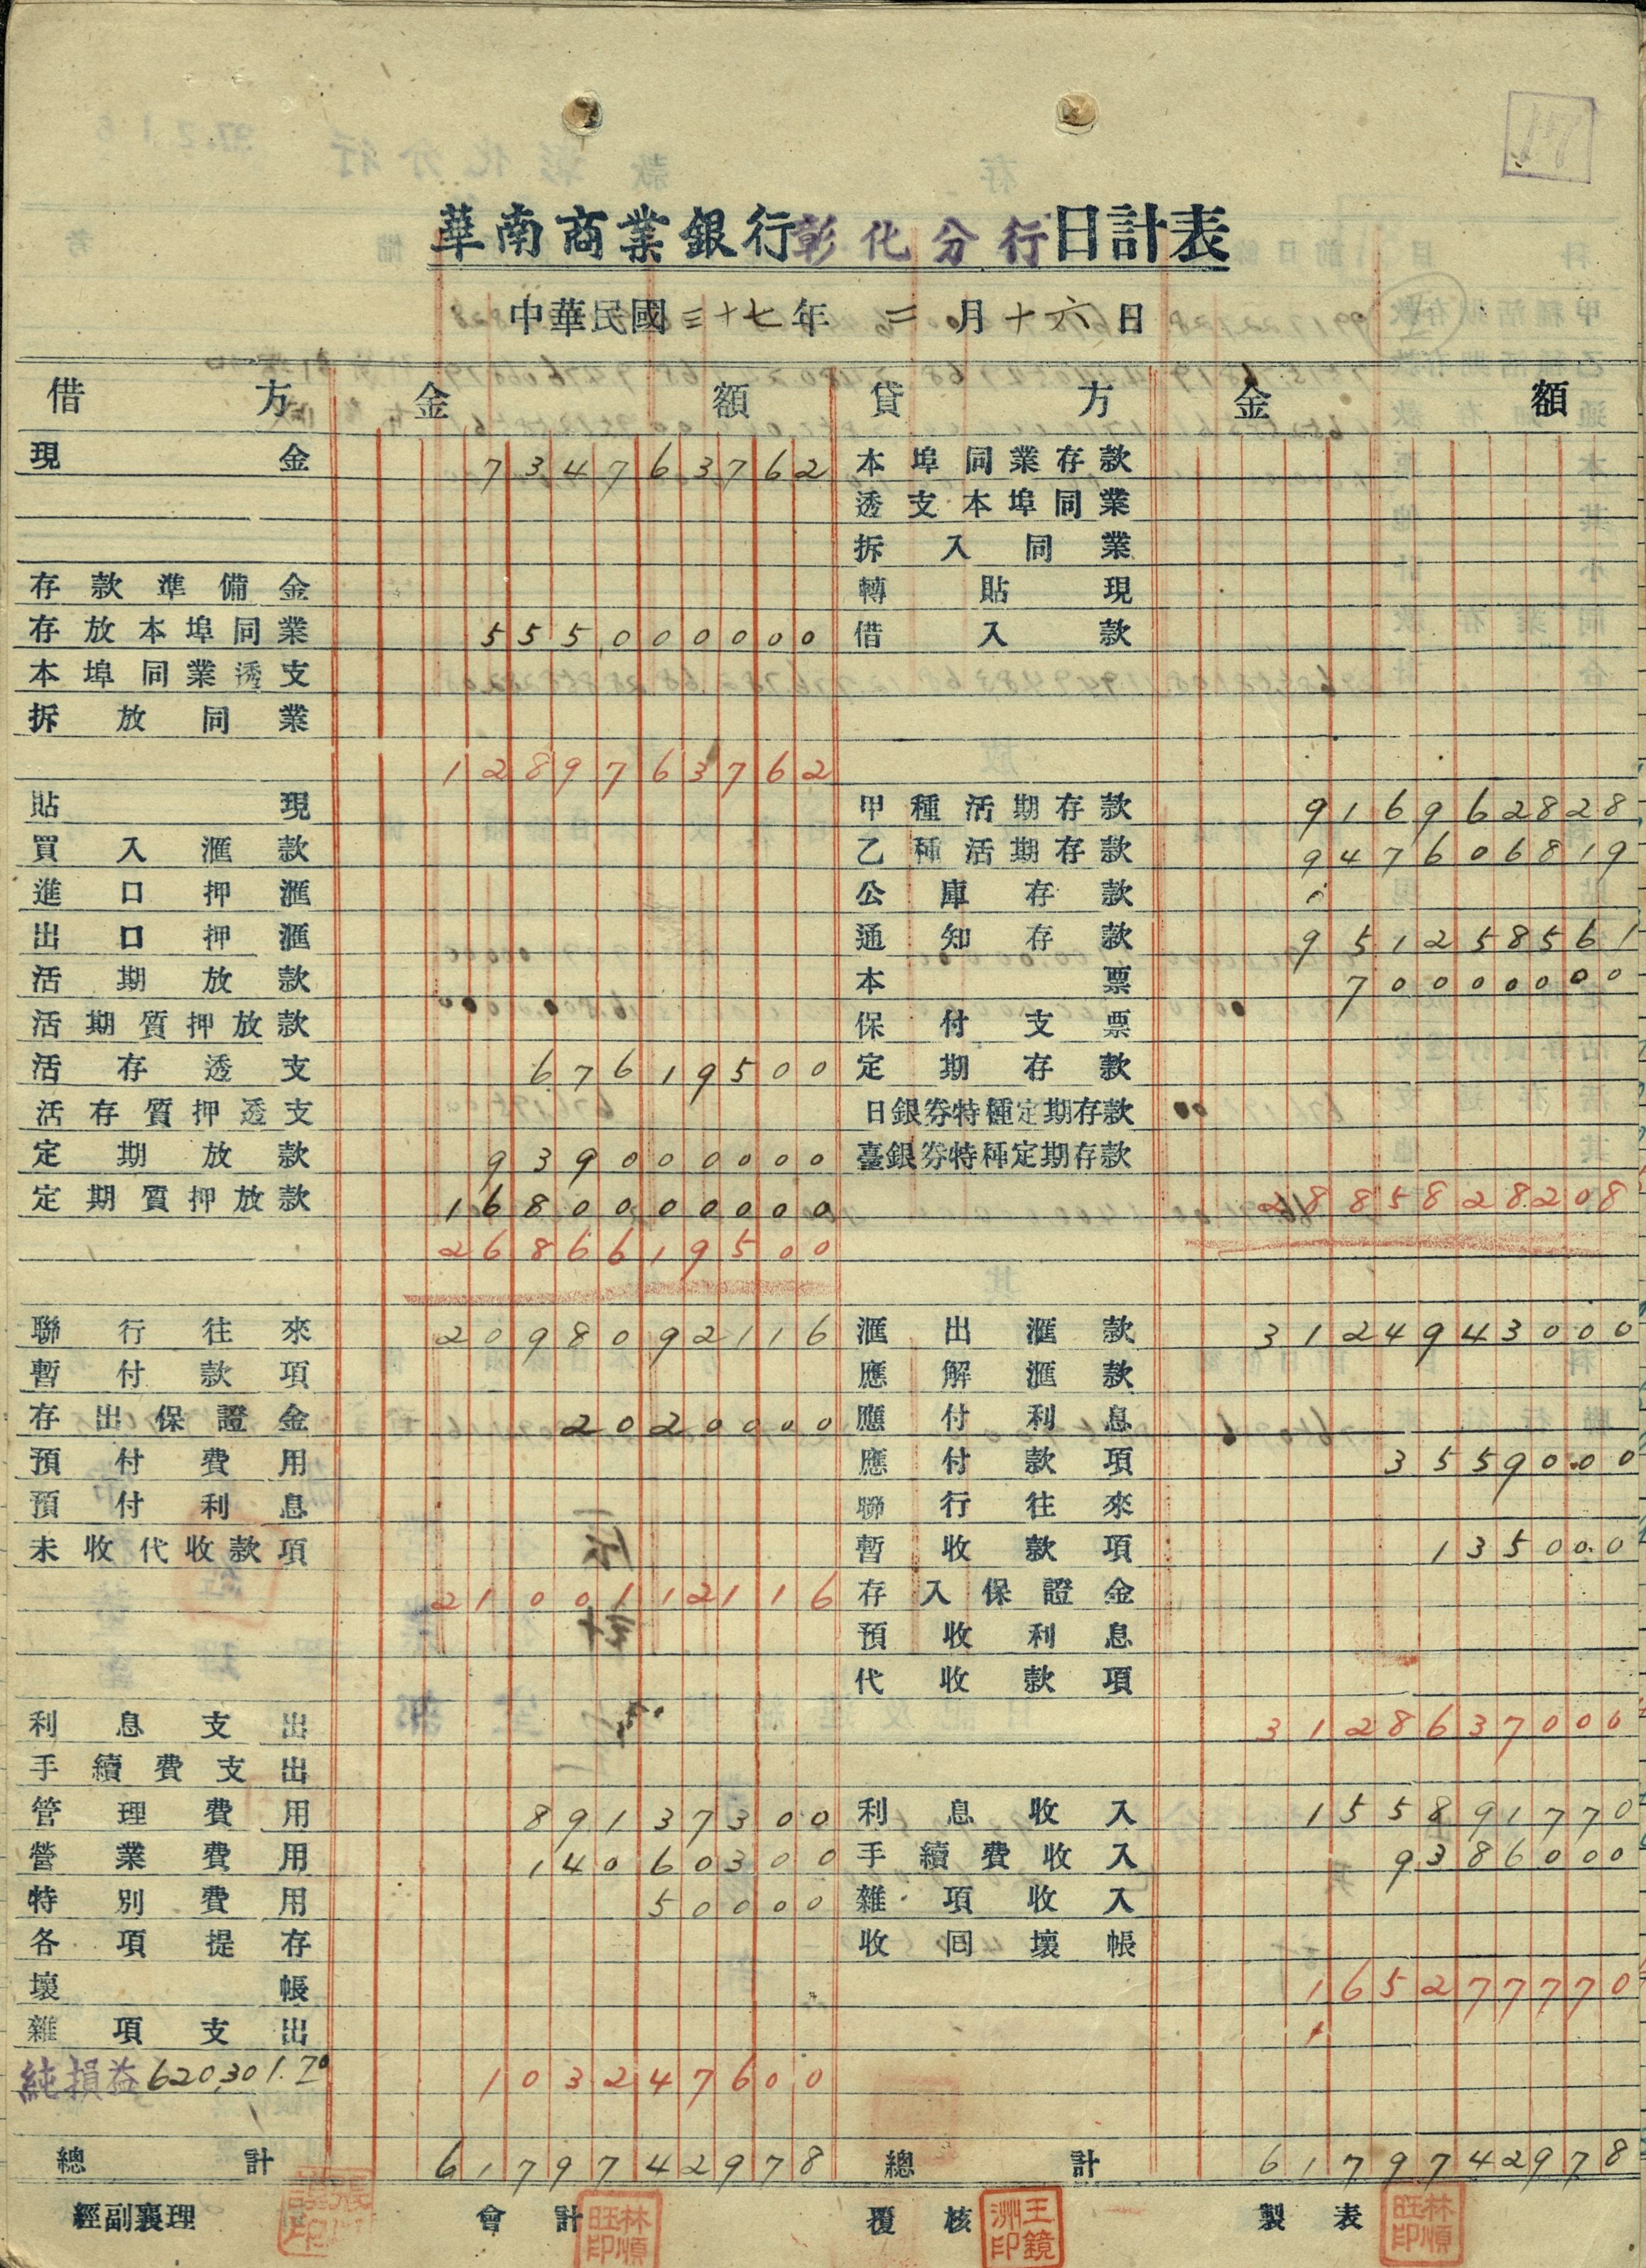 17
華南商業銀行彰化分行日計表
中華民國三十七年 二月十六日
借方 金額 貸方 金額
現金 734763762 本埠同業存款
透支本埠同業
拆入同業
存款準備金 轉貼現
存放本埠同業 555000000 借入款
本埠同業透支
拆放同業
1289763762
貼現 甲種活期存款 916962828
買入滙款 乙種活期存款 947606819
進口押滙 公庫存款
出口押滙 通知存款 951258561
活期放款 本票 70000000
活期質押放款 保付支票
活存透支 67619500 定期存款
活存質押透支 日銀券特種定期存款
定期放款 939000000 臺銀券特種定期存款
定期質押放款 1680000000 2885828208
2686619500
聯行往來 2098092116 滙出滙款 3124943000
暫付款項 應解滙款
存出保證金 2020000 應付利息
預付費用 應付款項 3559000
預付利息 聯行往來
未收代收款項 暫收款項 135000
2100112116 存入保證金
預收利息
代收款項
利息支出 3128637000
手續費支出
管理費用 89137300 利息收入 155891770
營業費用 14060300 手續費收入 9386000
特別費用 50000 雜項收入
各項提存 收回壞帳
壞帳 165277770
雜項支出
純損益 620,301.70 103247600
總計 6179742978 總計 6179742978
經副襄理 會計 林順旺印 覆核 王鏡洲印 製表 林順旺印